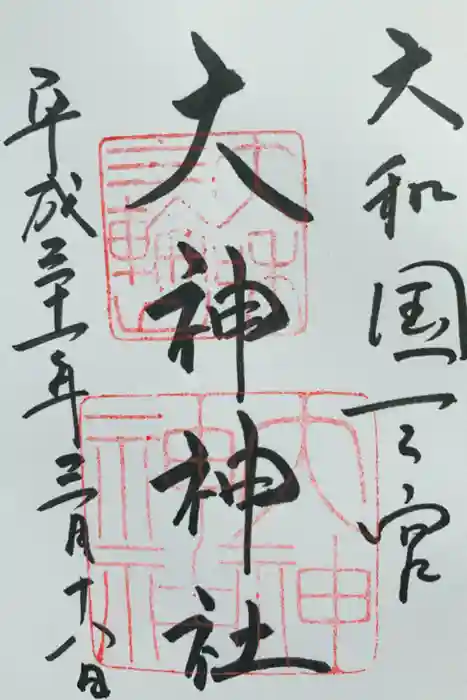 大和国一之宮
大神神社
平成三十一年三月十八日
大和
三輪山
大神
神社